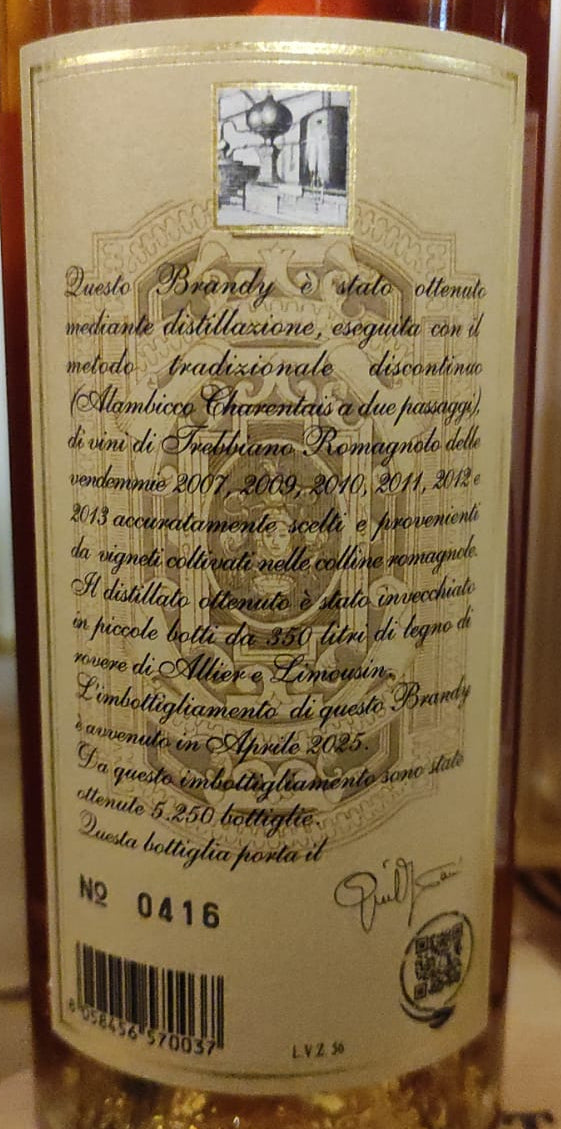 Questo Brandy è stato ottenuto
mediante distillazione, eseguita con il
metodo tradizionale discontinuo
(Alambicco Charentais a due passaggi),
di vini di Trebbiano Romagnolo delle
vendemmie 2007, 2009, 2010, 2011, 2012 e
2013 accuratamente scelti e provenienti
da vigneti coltivati nelle colline romagnole.
Il distillato ottenuto è stato invecchiato
in piccole botti da 350 litri di legno di
rovere di Allier e Limousin.
L'imbottigliamento di questo Brandy
è avvenuto in Aprile 2025.
Da questo imbottigliamento sono state
ottenute 5.250 bottiglie.
Questa bottiglia porta il
Nº 0416
8 058456 570037
L.V.Z. 56